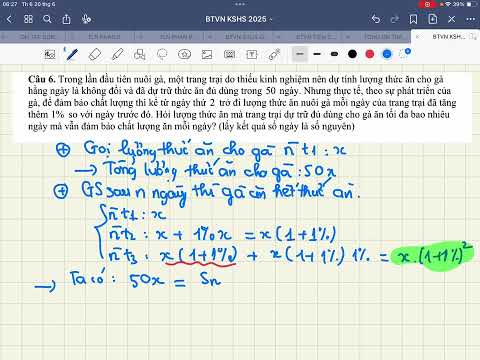 08:27 Th 6 20 thg 6
39%
BTVN KSHS 2025
BTVN KSHS...
Câu 6. Trong lần đầu tiên nuôi gà, một trang trại do thiếu kinh nghiệm nên dự tính lượng thức ăn cho gà
hằng ngày là không đổi và đã dự trữ thức ăn đủ dùng trong 50 ngày. Nhưng thực tế, theo sự phát triển của
gà, để đảm bảo chất lượng thì kể từ ngày thứ 2 trở đi lượng thức ăn nuôi gà mỗi ngày của trang trại đã tăng
thêm 1% so với ngày trước đó. Hỏi lượng thức ăn mà trang trại dự trữ đủ dùng cho gà ăn tối đa bao nhiêu
ngày mà vẫn đảm bảo chất lượng ăn mỗi ngày? (lấy kết quả số ngày là số nguyên)
+ Gọi lượng thức ăn cho gà n̄ t1 : x
→ Tổng lượng thức ăn cho gà : 50x
+ GS sau n ngày thì gà ăn hết thức ăn.
n̄t1 : x
n̄t2 : x + 1% x = x(1+1%)
n̄t3 : x(1+1%) + x(1+1%) 1% = x.(1+1%)²
→ Ta có : 50x = Sn